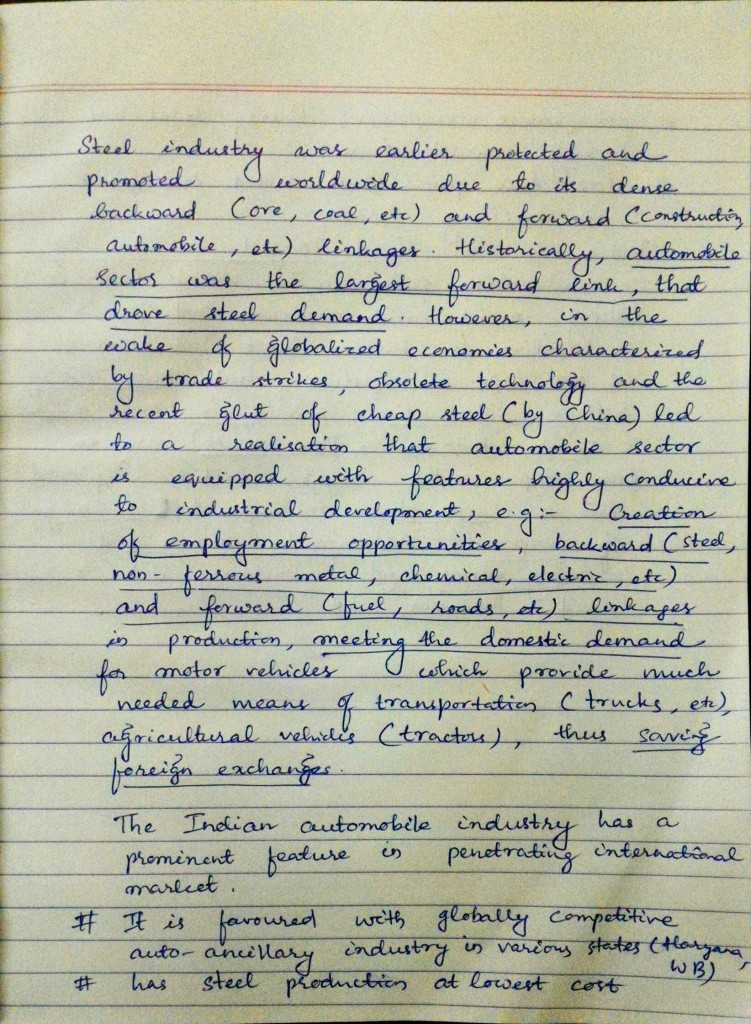 Steel industry was earlier protected and
promoted worldwide due to its dense
backward (ore, coal, etc) and forward (construction,
automobile, etc) linkages. Historically, automobile
sector was the largest forward link, that
drove steel demand. However, in the
wake of globalized economies characterized
by trade strikes, obsolete technology and the
recent glut of cheap steel (by China) led
to a realisation that automobile sector
is equipped with features highly conducive
to industrial development, e.g:- Creation
of employment opportunities, backward (steel,
non-ferrous metal, chemical, electric, etc)
and forward (fuel, roads, etc) linkages
in production, meeting the domestic demand
for motor vehicles which provide much
needed means of transportation (trucks, etc),
agricultural vehicles (tractors), thus saving
foreign exchanges.
The Indian automobile industry has a
prominent feature in penetrating international
market.
# It is favoured with globally competitive
auto-ancillary industry in various states (Haryana,
WB)
# has steel production at lowest cost